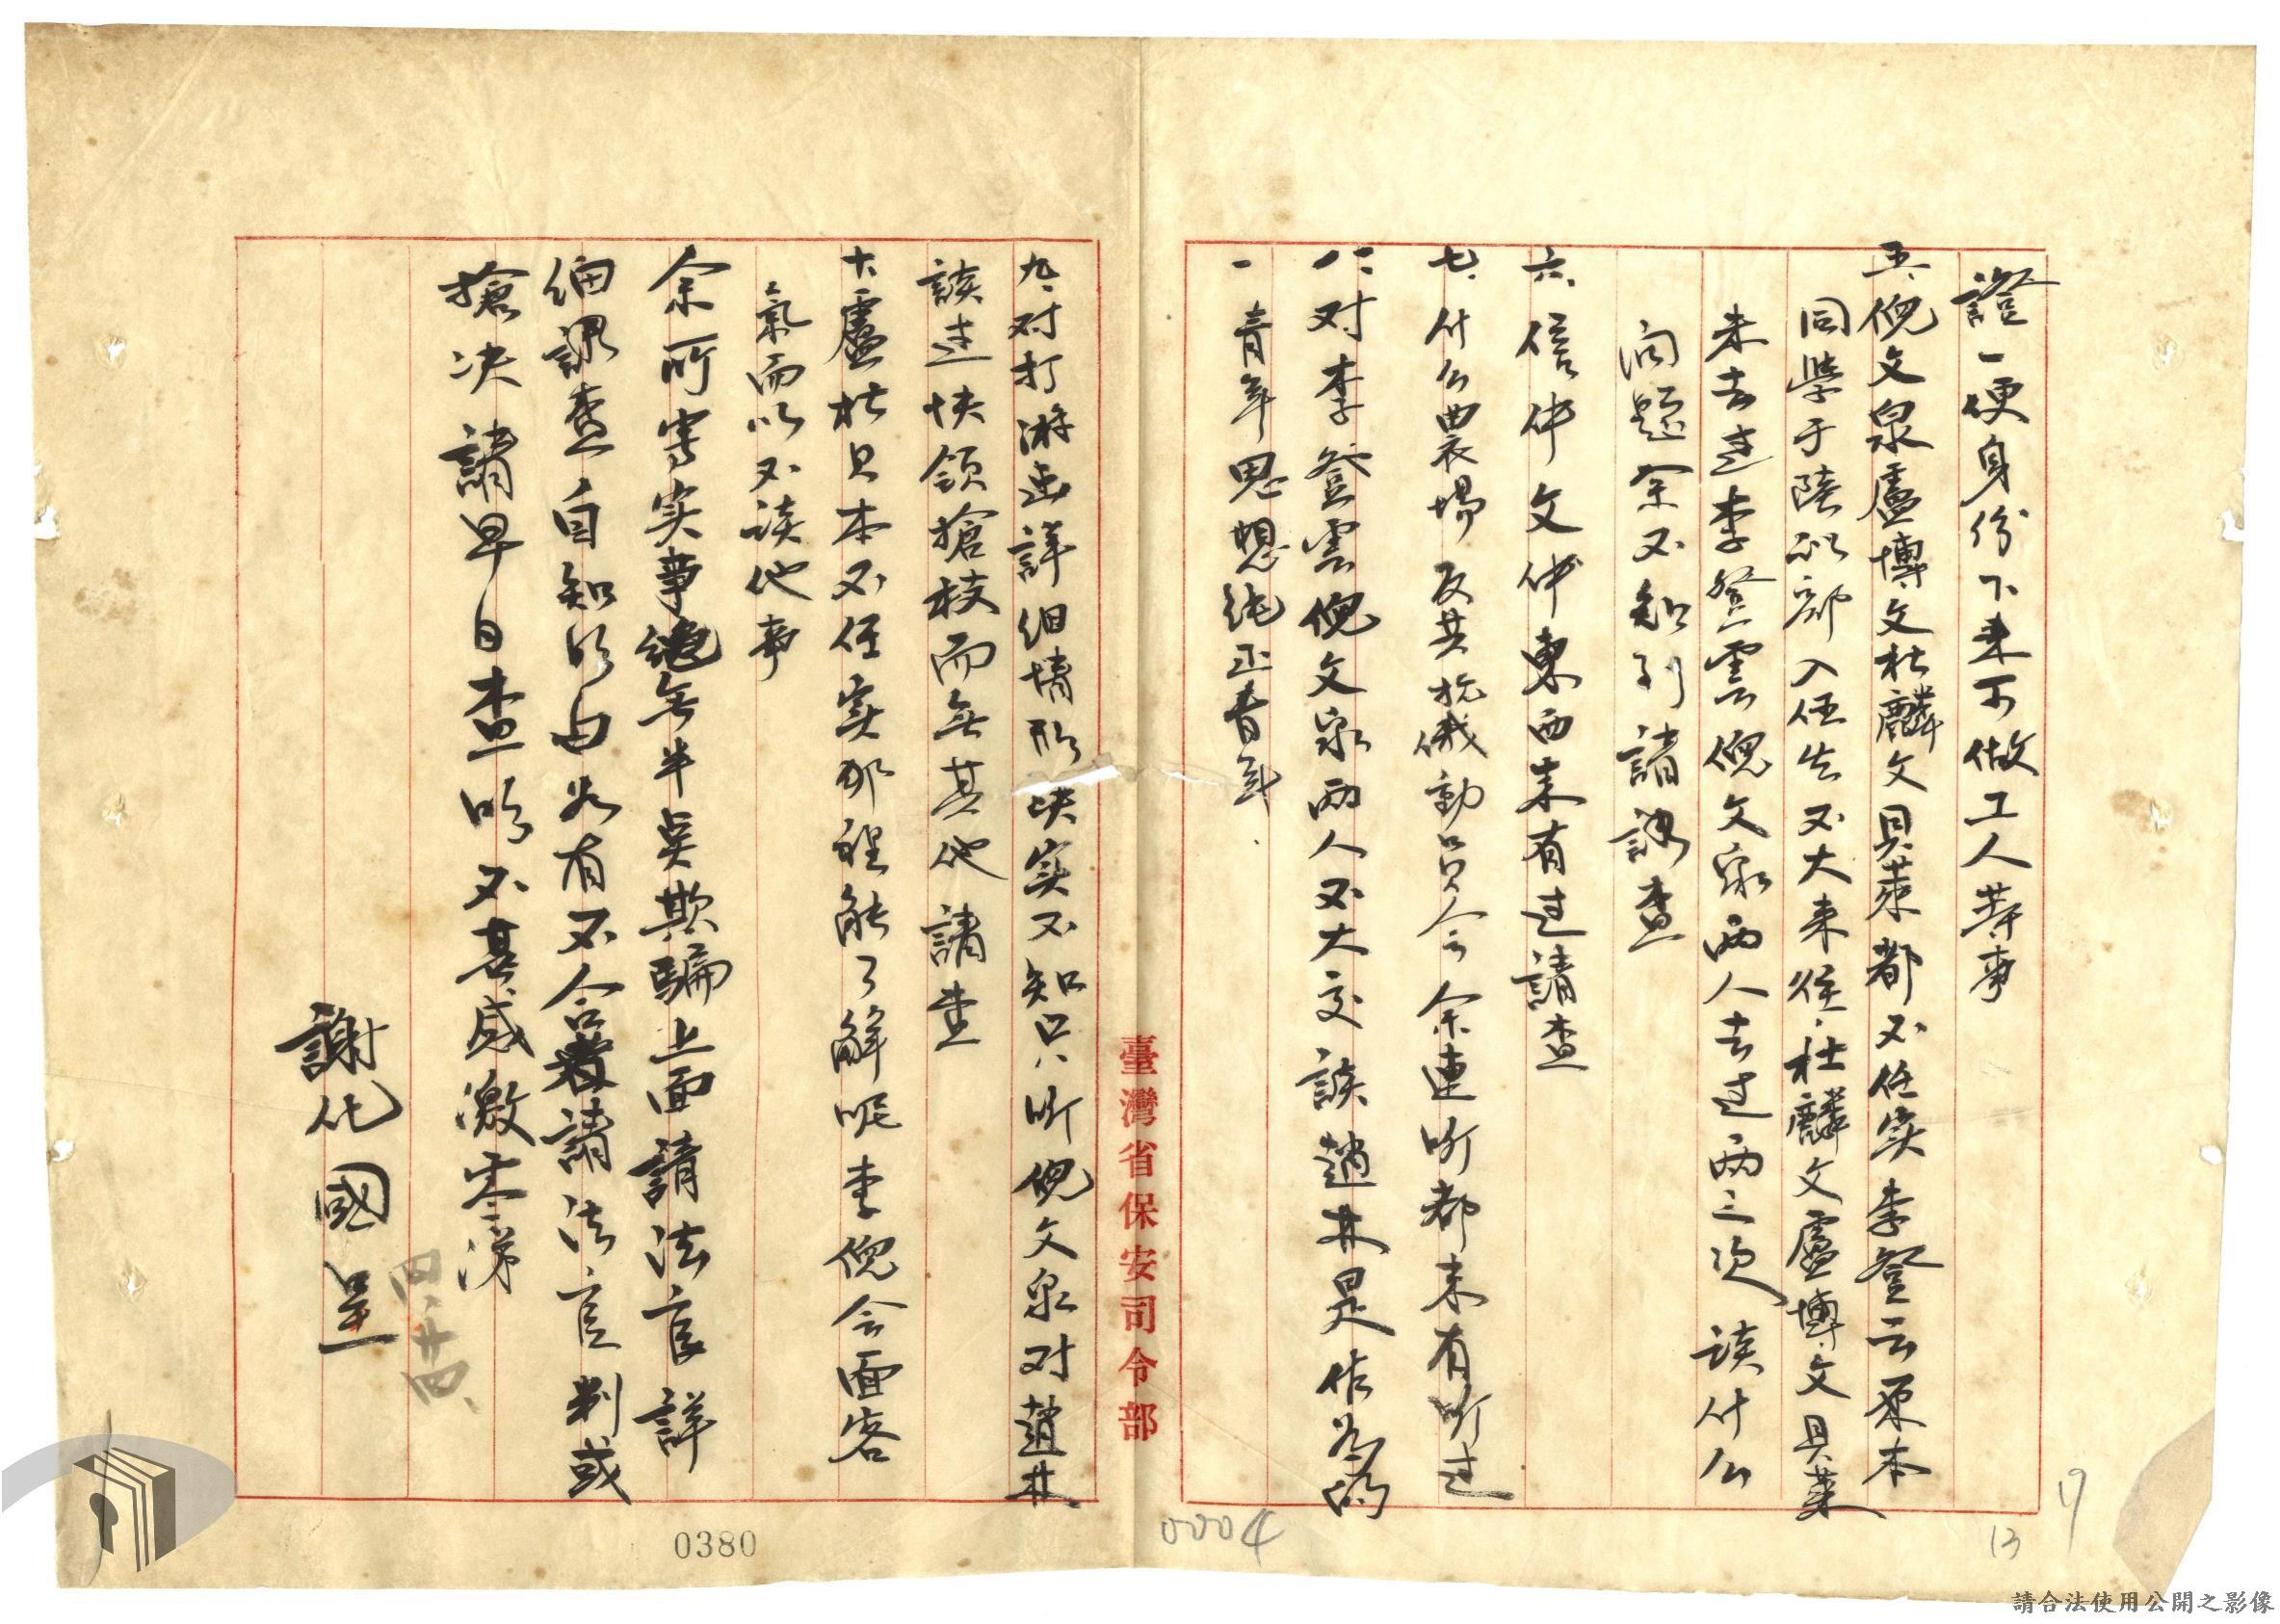 證一便身份下来可做工人等事
五、倪文泉盧博文杜麟文貝萊都不任实李登云原本
同學于陸訓部入伍生不大来往、杜麟文盧博文具萊
未去过李登雲倪文泉两人去过两三次談什么
问题余不知到請調查
六、信件文件東西未有过請查
七、什么農場反共抗俄動员会余連听都未有听过
八、对李登雲倪文泉两人不大交談趙林是作為的
一青年思想純正青年
九、对打游击詳细情形决实不知只听倪文泉对趙林
談过快領搶枝而無其他請查
十、盧杜只本不侄实那裡能了解呢李倪会面客
氣而以不談他事
余所寫实事絕無半點欺騙上面請法官詳
细調查自知明白若有不合者請法官判或
搶决請早日查明不甚感激零涕
謝化國呈
四、廿四、
臺灣省保安司令部
0380
0004
13
請合法使用公開之影像